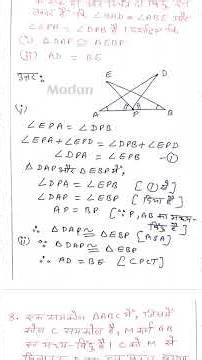 ∠BAD = ∠ABE और
∠EPA = ∠DPB है।
(i) △DAP ≅ △EBP
(ii) AD = BE
उत्तर:
E
D
Madan
A
P
B
(i)
∠EPA = ∠DPB
∠EPA + ∠EPD = ∠DPB + ∠EPD
∠DPA = ∠EPB —①
△DAP और △EBP में,
∠DPA = ∠EPB [① से]
∠DAP = ∠EBP [दिया है]
AP = BP [∵ P, AB का मध्य-
बिंदु है]
∴ △DAP ≅ △EBP [ASA]
(ii) ∵ △DAP ≅ △EBP
∴ AD = BE [CPCT]
8. एक समकोण △ABC में, जिसमें
कोण C समकोण है, M कर्ण AB
का मध्य-बिंदु है। C को M से